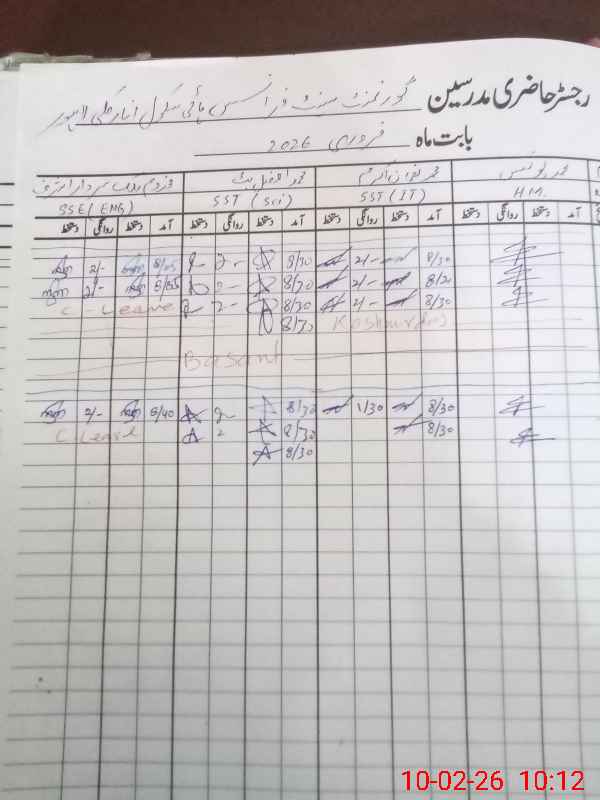 رجسٹر حاضری مدرسین گورنمنٹ سینٹ فرانسس ہائی سکول انارکلی لاہور
بابت ماہ فروری 2026
محمد یونس محمد اکرم محمد افضل بٹ
H.M. SST (IT) SST (Sci) SSE (ENG)
آمد دستخط روانگی دستخط آمد دستخط روانگی دستخط آمد دستخط روانگی دستخط آمد دستخط روانگی دستخط
2/- 2 - 8/30 2/- 8/30
2/- 8/55 2 - 8/30 2/- 8/20
C - Leave 2 - 8/30 2/- 8/30
8/30 Kashmir day
Basant
2/- 8/40 2 8/30 1/30 8/30
C Leave 2 8/30 8/30
8/30
10-02-26 10:12